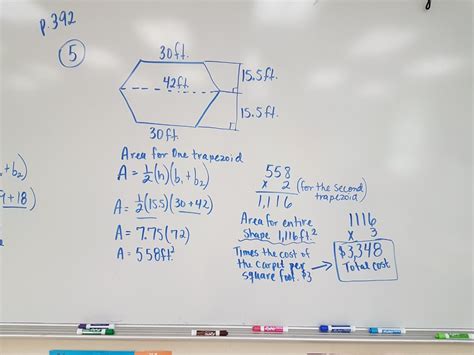 p.392
5
30ft.
42ft.
15.5ft.
15.5ft.
30ft.
Area for One trapezoid
A = 1/2(h)(b₁+b₂)
A = 1/2(155)(30+42)
A = 7.75(72)
A = 558ft²
+b₂)
9+18)
558
x 2 (for the second trapezoid)
1,116
Area for entire
shape 1,116ft.²
Times the cost of
the carpet per
square foot. $3
1116
x 3
$3,348
Total cost